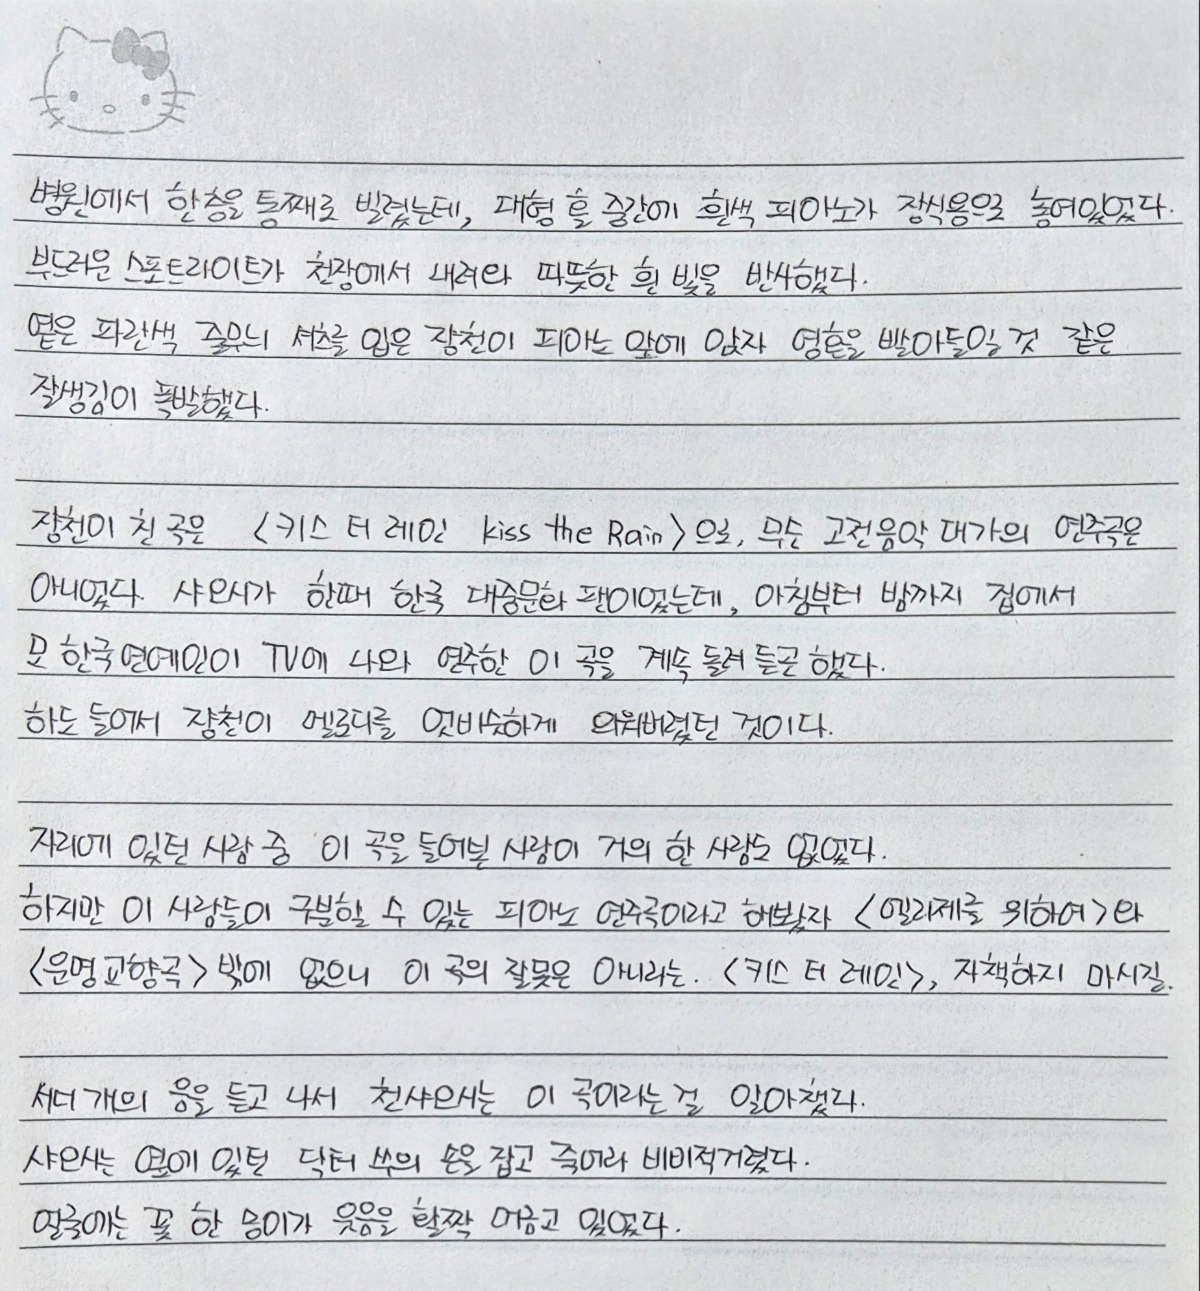 병원에서 한층을 통째로 빌렸는데, 대형 홀 중간에 흰색 피아노가 장식용으로 놓여있었다.
부드러운 스포트라이트가 천장에서 내려와 따뜻한 흰 빛을 반사했다.
옅은 파란색 줄무늬 셔츠를 입은 장천이 피아노 앞에 앉자 영혼을 빨아들일 것 같은
잘생김이 폭발했다.
장천이 친 곡은 <키스 더 레인 kiss the Rain>으로, 무슨 고전음악 대가의 연주곡은
아니었다. 샤오시가 한때 한국 대중문화 팬이었는데, 아침부터 밤까지 집에서
모 한국연예인이 TV에 나와 연주한 이 곡을 계속 돌려 듣곤 했다.
하도 들어서 장천이 멜로디를 엇비슷하게 외워버렸던 것이다.
자리에 있던 사람 중 이 곡을 들어본 사람이 거의 한 사람도 없었다.
하지만 이 사람들이 구분할 수 있는 피아노 연주곡이라고 해봤자 <엘리제를 위하여>와
<운명교향곡> 밖에 없으니 이 곡의 잘못은 아니라는. <키스 더 레인>, 자책하지 마시길.
서너 개의 음을 듣고 나서 천샤오시는 이 곡이라는 걸 알아챘다.
샤오시는 옆에 있던 닥터 쑤의 손을 잡고 죽어라 비비적거렸다.
얼굴에는 꽃 한 송이가 웃음을 활짝 머금고 있었다.